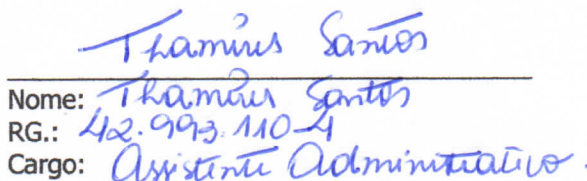 Thamires Santos
Nome: Thamires Santos
RG.: 42.993.110-4
Cargo: Assistente Administrativo.